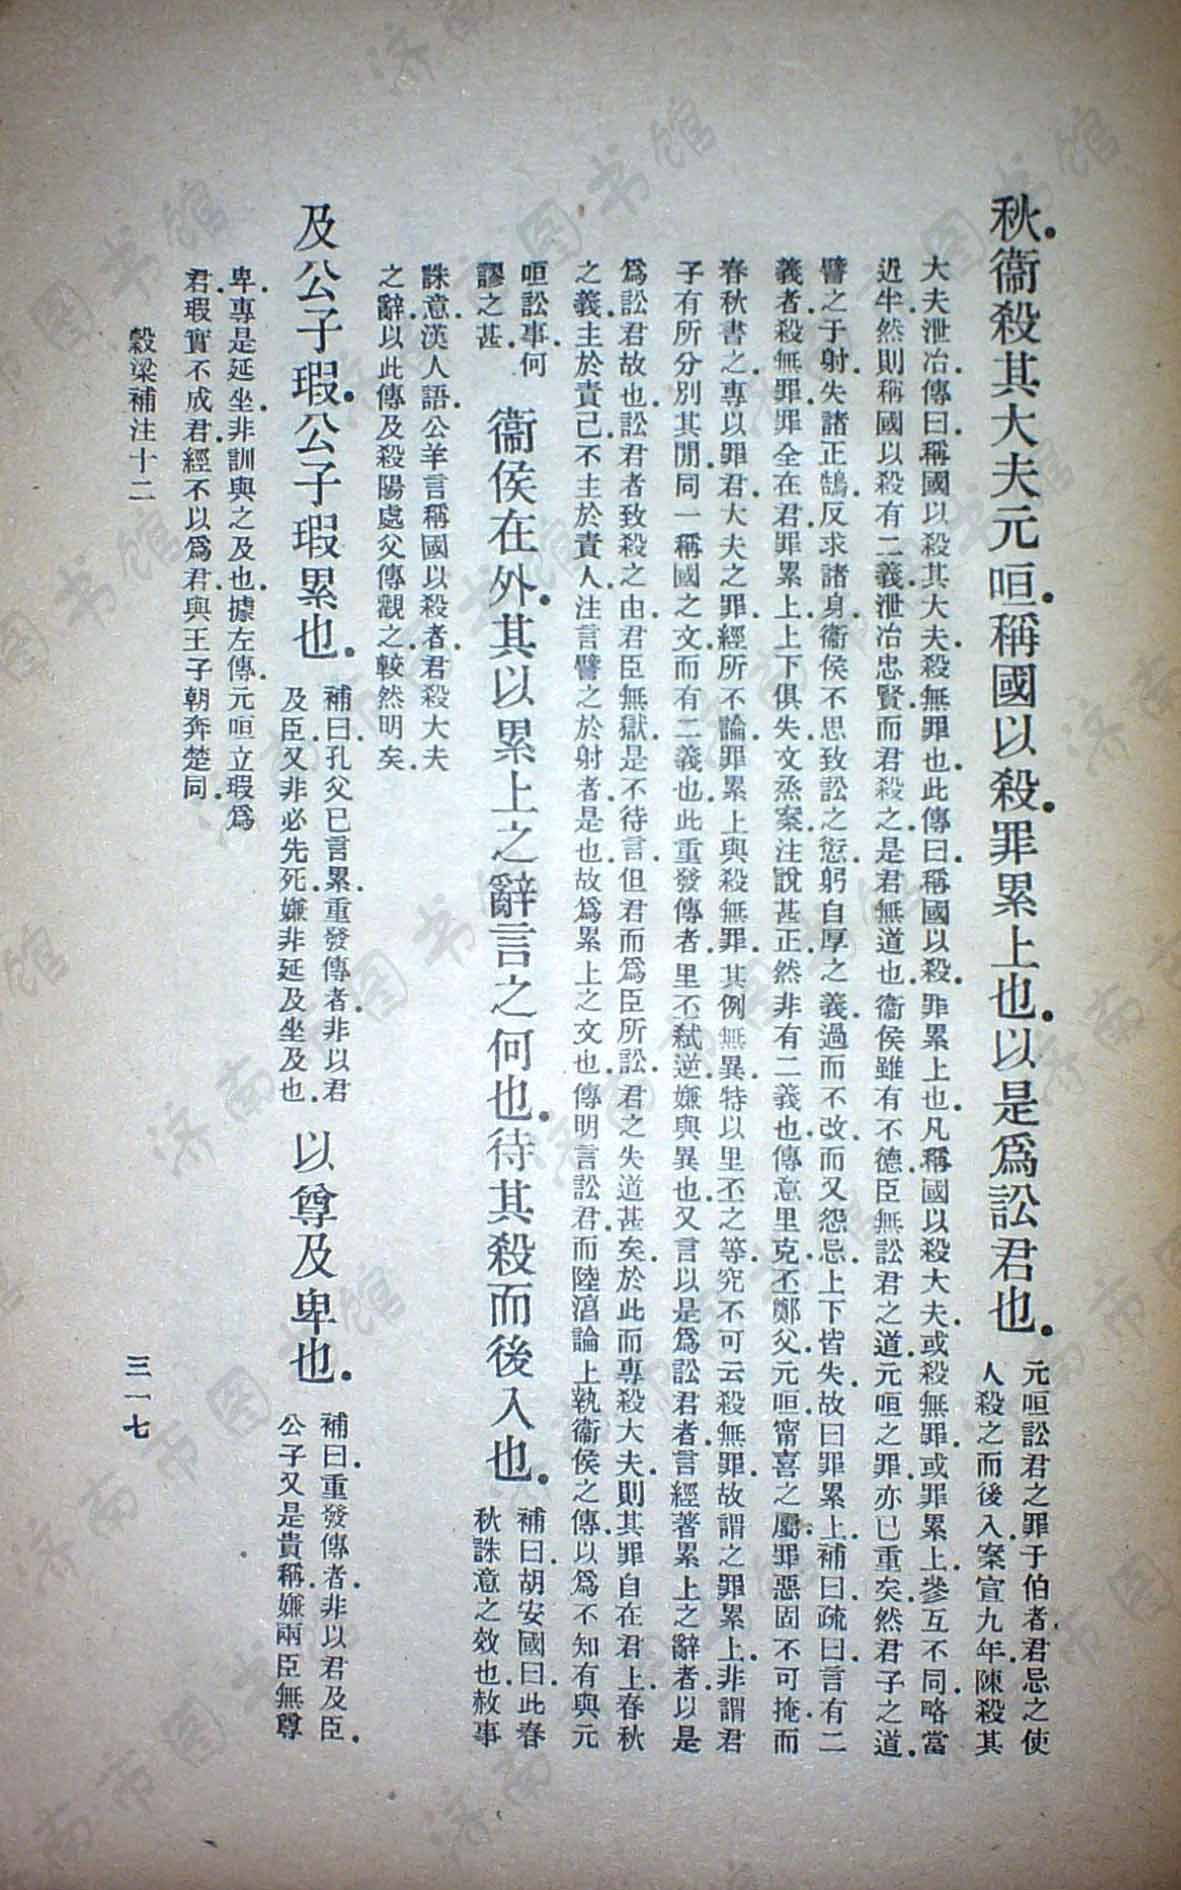 秋.衞殺其大夫元咺.稱國以殺.罪累上也.以是爲訟君也.
元咺訟君之罪于伯者.君忌之使
人殺之而後入.案宣九年.陳殺其
大夫泄冶.傳曰.稱國以殺其大夫.殺無罪也.此傳曰.稱國以殺.罪累上也.凡稱國以殺大夫.或殺無罪.或罪累上.參互不同.略當
近半.然則稱國以殺有二義.泄冶忠賢.而君殺之.是君無道也.衞侯雖有不德.臣無訟君之道.元咺之罪.亦已重矣.然君子之道.
譬之于射.失諸正鵠.反求諸身.衞侯不思致訟之愆.躬自厚之義.過而不改.而又怨忌.上下皆失.故曰罪累上.補曰.疏曰.言有二
義者.殺無罪.罪全在君.罪累上.上下俱失.文烝案.注說甚正.然非有二義也.傳意里克.丕鄭父.元咺.甯喜之屬.罪惡固不可掩.而
春秋書之.專以罪君.大夫之罪.經所不論.罪累上與殺無罪.其例無異.特以里丕之等.究不可云殺無罪.故謂之罪累上.非謂君
子有所分別其閒.同一稱國之文.而有二義也.此重發傳者.里丕弒逆.嫌與異也.又言以是爲訟君者.言經著累上之辭者.以是
爲訟君故也.訟君者.致殺之由.君臣無獄.是不待言.但君而爲臣所訟.君之失道甚矣.於此而專殺大夫.則其罪自在君上.春秋
之義.主於責己.不主於責人.注言譬之於射者.是也.故爲累上之文也.傳明言訟君.而陸淳論上執衞侯之傳.以爲不知有與元
咺訟事.何
謬之甚.
衞侯在外.其以累上之辭言之何也.待其殺而後入也.
補曰.胡安國曰.此春
秋誅意之效也.赦事
誅意.漢人語.公羊言稱國以殺者.君殺大夫
之辭.以此傳及殺陽處父傳觀之.較然明矣.
及公子瑕.公子瑕累也.
補曰.孔父已言累.重發傳者.非以君
及臣.又非必先死.嫌非延及坐及也.
以尊及卑也.
補曰.重發傳者.非以君及臣.
公子又是貴稱.嫌兩臣無尊
卑.專是延坐.非訓與之及也.據左傳.元咺立瑕爲
君.瑕實不成君.經不以爲君.與王子朝奔楚同.
穀梁補注十二
三一七